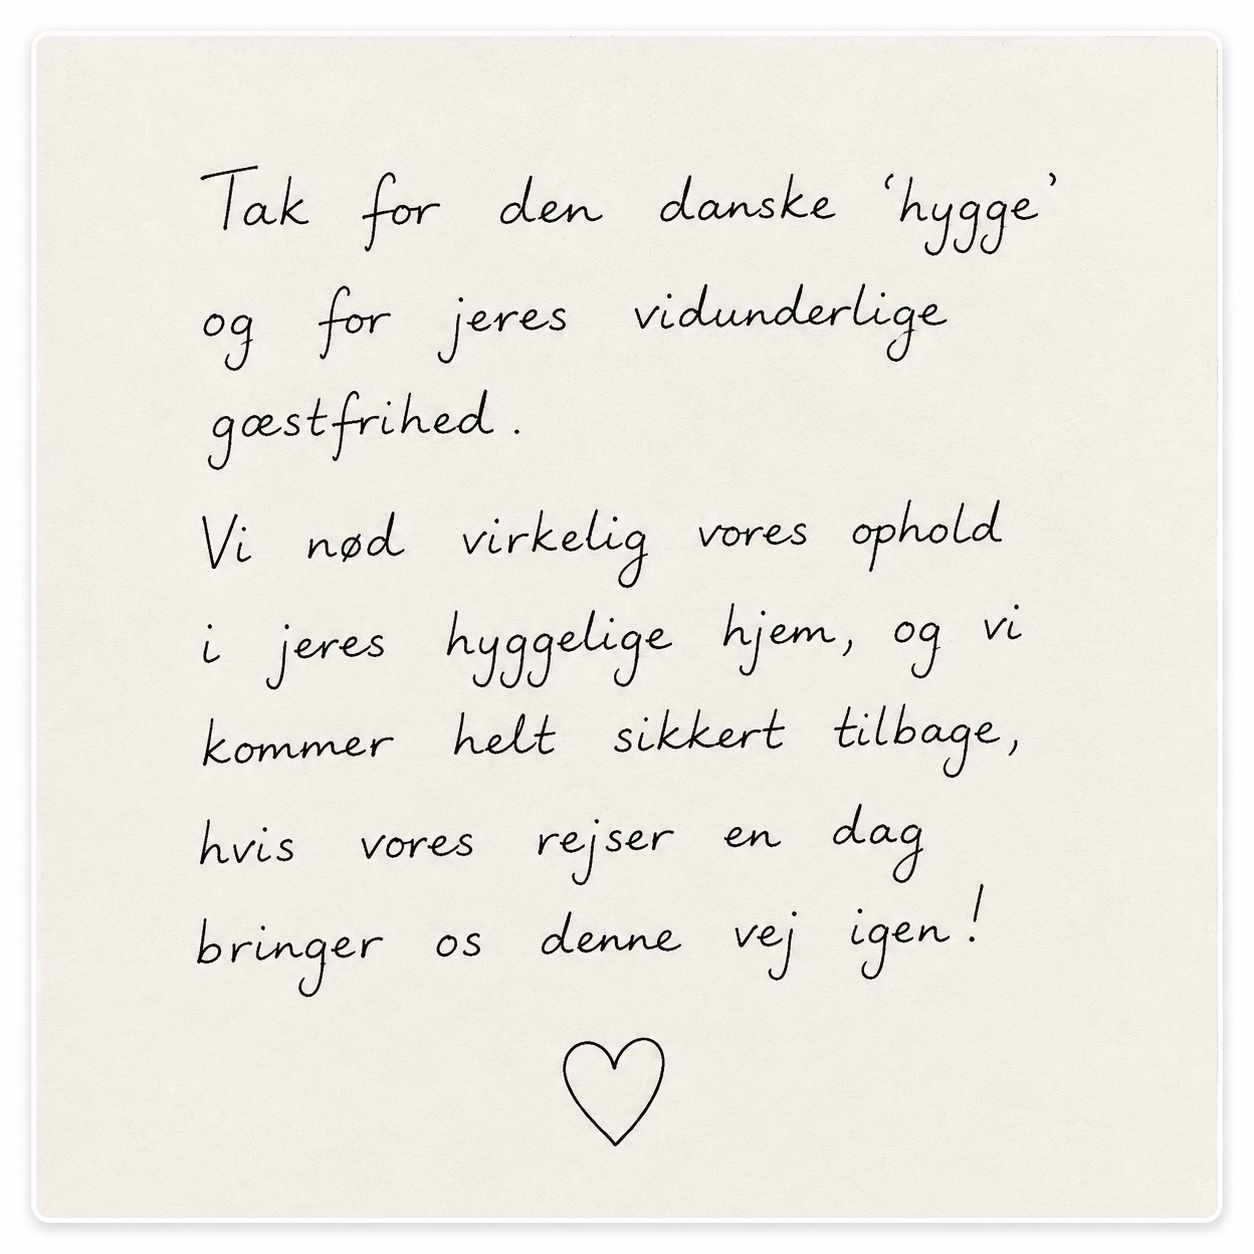 Tak for den danske ‘hygge’
og for jeres vidunderlige
gæstfrihed.
Vi nød virkelig vores ophold
i jeres hyggelige hjem, og vi
kommer helt sikkert tilbage,
hvis vores rejser en dag
bringer os denne vej igen!